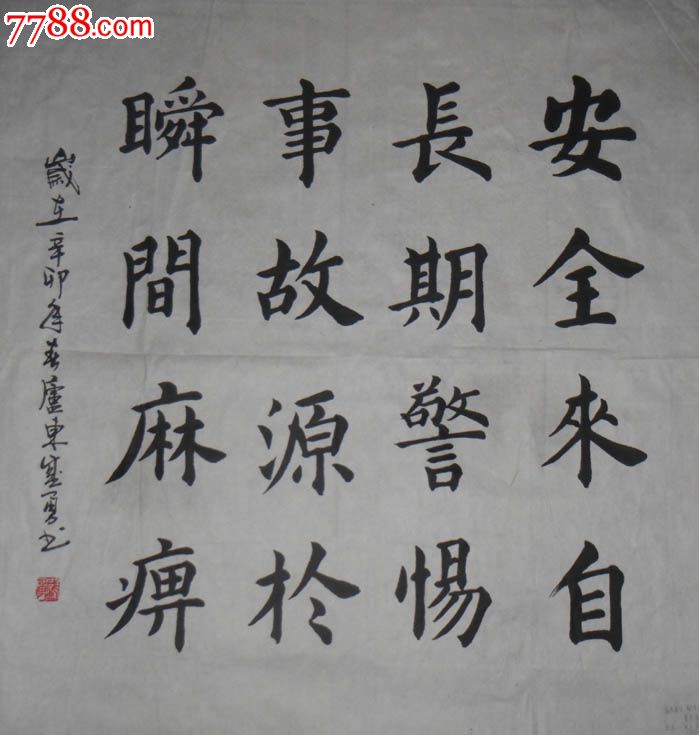 7788.com
安全來自
長期警惕
事故源於
瞬間麻痹
歲在辛卯年春廬東盛勇书